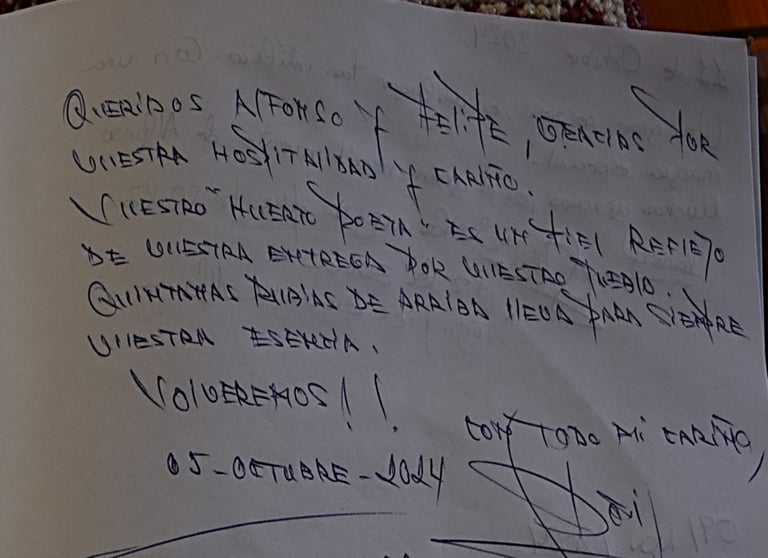 QUERIDOS ALFONSO Y FELIPE, GRACIAS POR
VUESTRA HOSPITALIDAD Y CARIÑO.
VUESTRO "HUERTO POETA" ES UN FIEL REFLEJO
DE VUESTRA ENTREGA POR VUESTRO PUEBLO.
QUINTANAS RUBIAS DE ARRIBA LLEVA PARA SIEMPRE
VUESTRA ESENCIA.
VOLVEREMOS!!
CON TODO MI CARIÑO,
05-OCTUBRE-2024